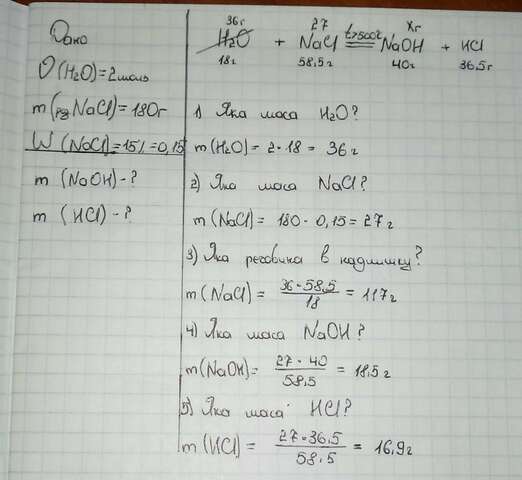 Дано
ν(H₂O)=2моль
m(рр NaCl)=180г
W(NaCl)=15%=0,15
m (NaOH) - ?
m (HCl) - ?
36г 27 Xг
H₂O + NaCl t>500% NaOH + HCl
18г 58,5г 40г 36,5г
1) Яка маса H₂O?
m(H₂O) = 2·18 = 36г
2) Яка маса NaCl?
m(NaCl) = 180 · 0,15 = 27г
3) Яка речовина в надлишку?
m(NaCl) = 36·58,5 / 18 = 117г
4) Яка маса NaOH?
m(NaOH) = 27·40 / 58.5 = 18,5г
5) Яка маса HCl?
m(HCl) = 27·36,5 / 58.5 = 16,9г